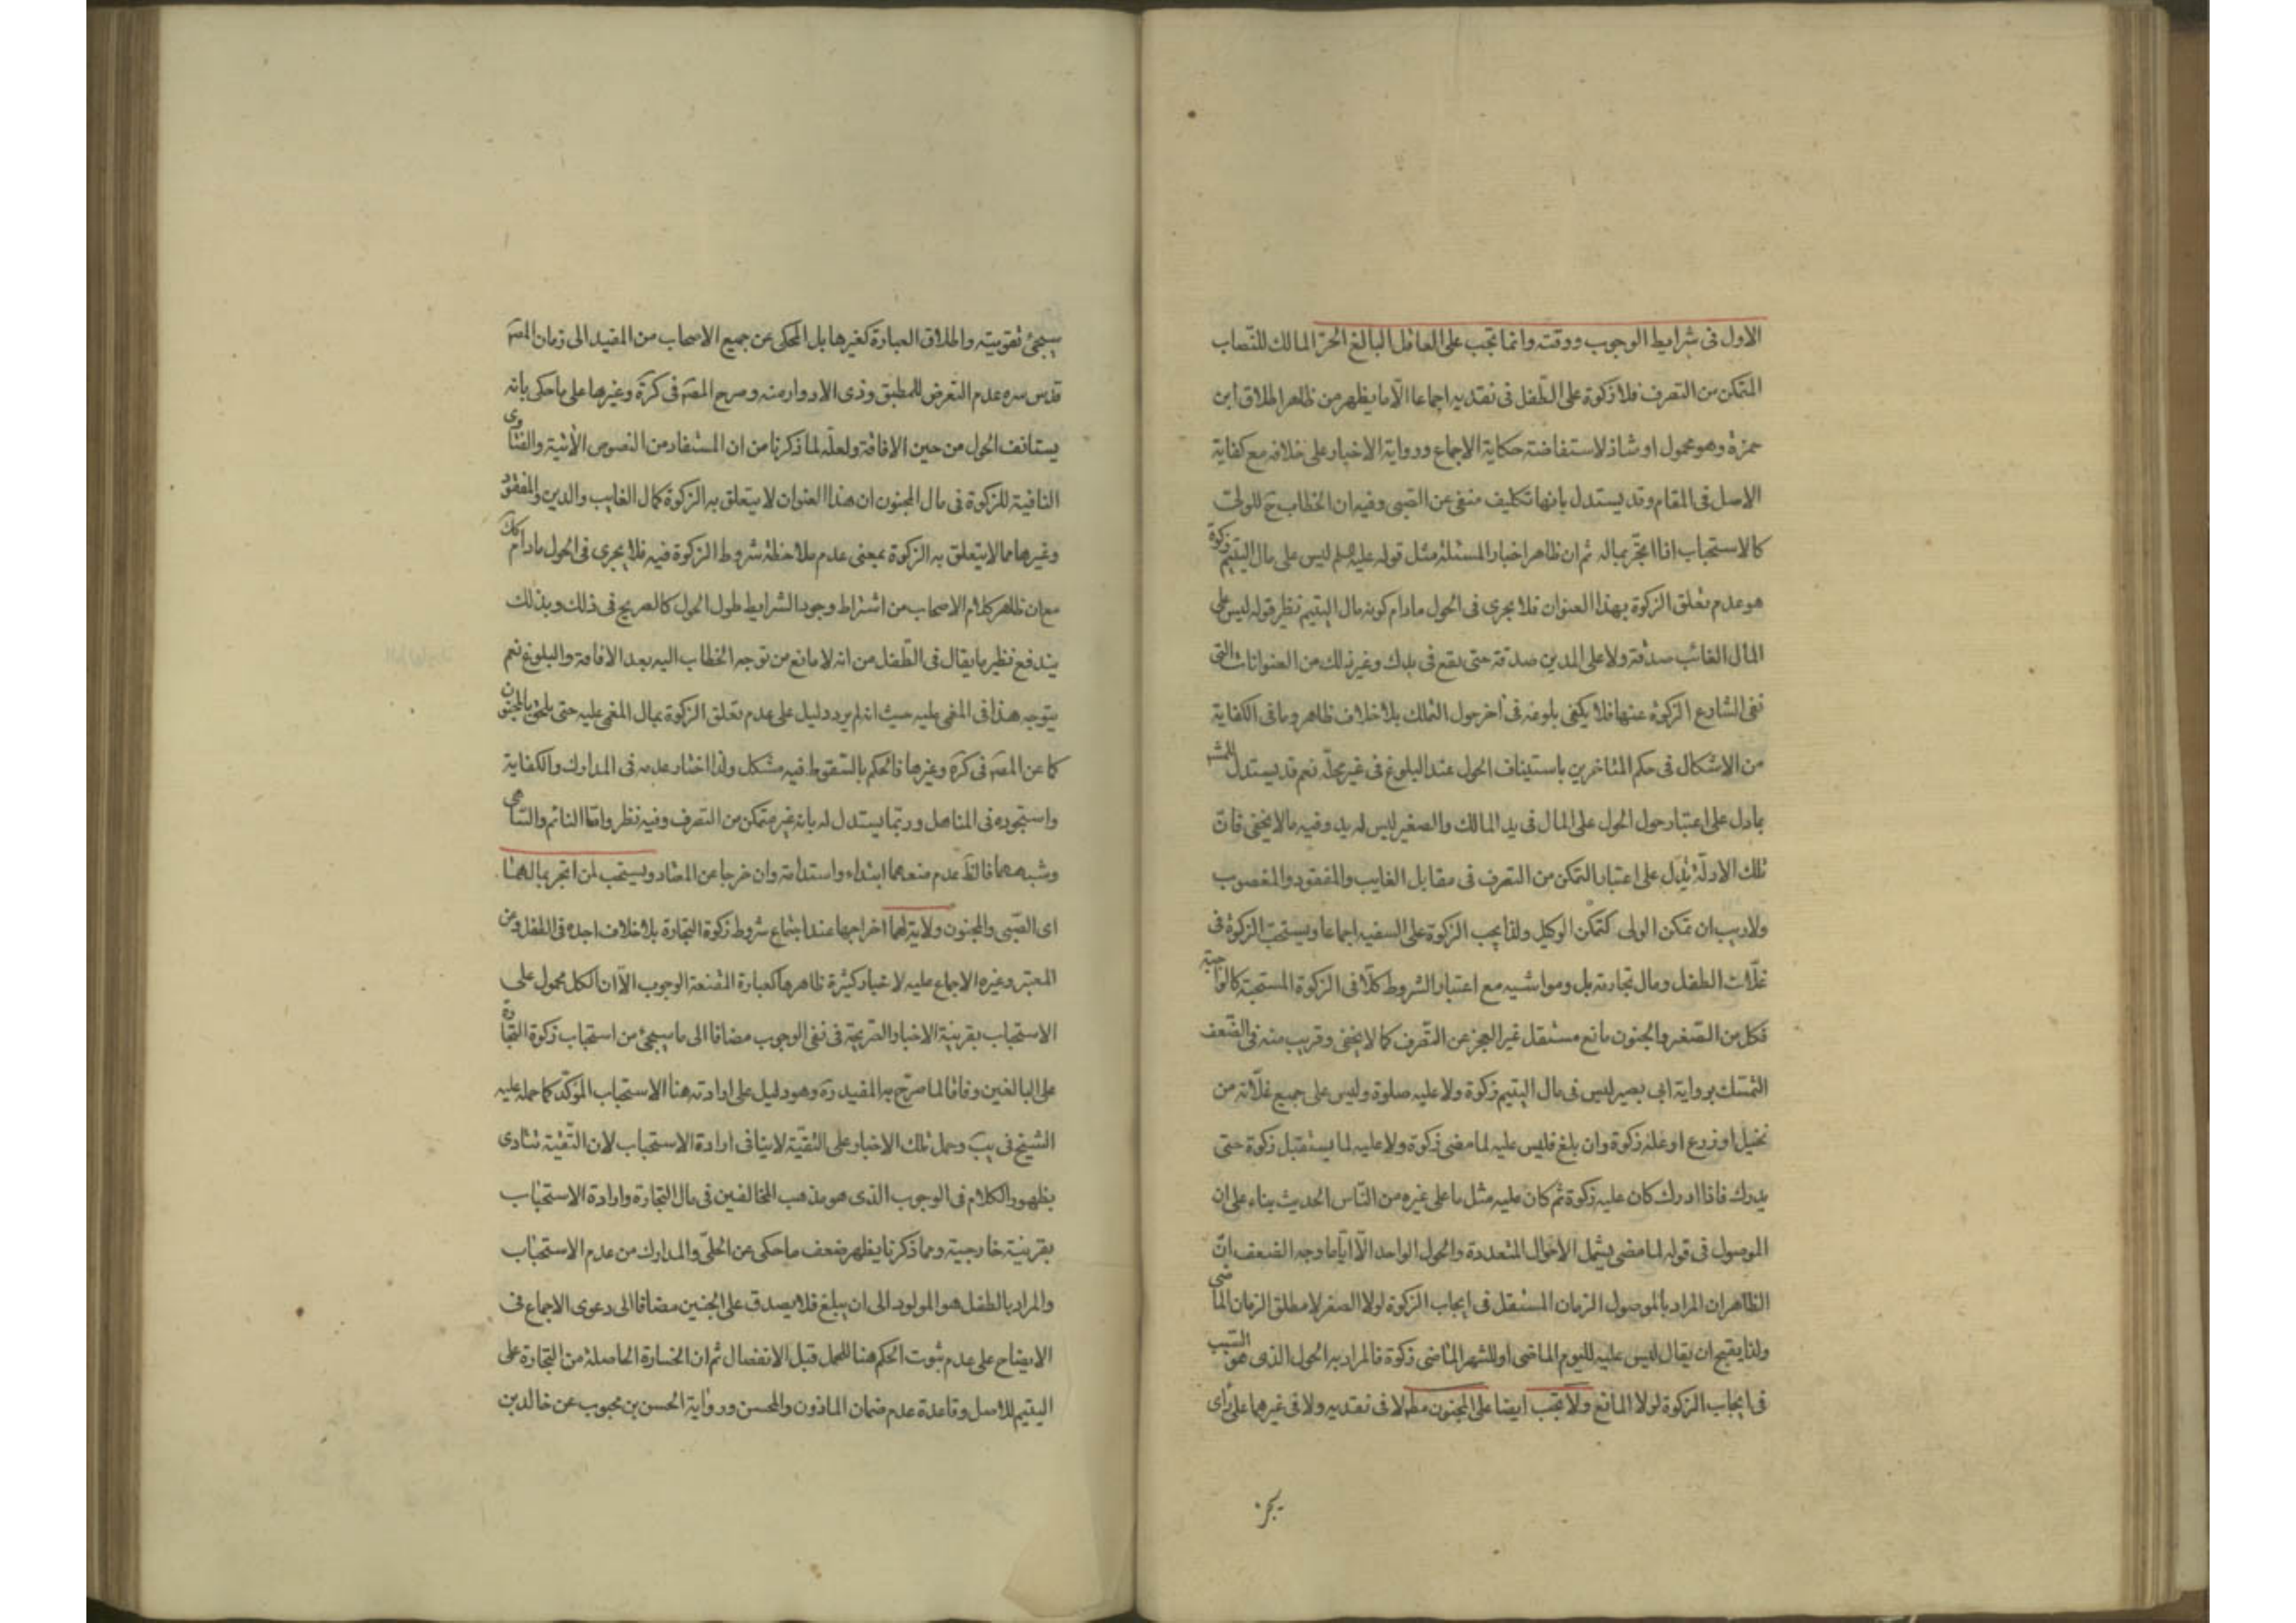 الاول فى شرايط الوجوب ووقته وانما تجب على العاقل البالغ الحرّ المالك للنّصاب
المتمكن من التصرف فلا زكوة على الطّفل فى نقديه اجماعا الّا ما يظهر من ظاهر اطلاق ابن
حمزة وهو محمول او شاذ لاستفاضة حكاية الاجماع ورواية الاخبار على خلافه مع كفاية
الاصل فى المقام وقد يستدل بانها تكليف منفى عن الصّبى وفيه ان الخطاب ح للولى
كالاستحباب اذا اتّجر بماله ثم ان ظاهر اخبار المسئلة مثل قوله عليه السلم ليس على مال اليتيم زكوة
هو عدم تعلق الزكوة بهذا العنوان فلا يجرى فى الحول مادام كونه مال اليتيم نظير قوله ليس على
المال الغائب صدقة ولا على الدين صدقة حتى يقع فى يدك وغير ذلك من العنوانات التى
نفى الشارع الزكوة عنها فلا يكفى بلوغه فى آخر حول التملك بلا خلاف ظاهر وما فى الكفاية
من الاشكال فى حكم المتاخرين باستيناف الحول عند البلوغ فى غير محلّه نعم قد يستدل للمشهـ
بما دل على اعتبار حول الحول على المال فى يد المالك والصغير ليس له يد وفيه ما لا يخفى فان
تلك الادلّة تدل على اعتبار التمكن من التصرف فى مقابل الغايب والمفقود والمغصوب
ولا ريب ان تمكن الولى كتمكن الوكيل ولذا يجب الزكوة على السفيه اجماعا ويستحبّ الزكوة فى
غلّات الطفل ومال تجارته بل ومواشيه مع اعتبار الشروط كلّا فى الزكوة المستحبة كالواجبة
فكل من الصّغر والجنون مانع مستقل غير العجز عن التّصرف كما لا يخفى وقريب منه فى الضّعف
التمسّك برواية ابى بصير ليس فى مال اليتيم زكوة ولا عليه صلوة وليس على جميع غلّاته من
نخيل او زرع او غلة زكوة وان بلغ فليس عليه لما مضى زكوة ولا عليه لما يستقبل زكوة حتى
يدرك فاذا ادرك كان عليه زكوة ثم كان عليه مثل ما على غيره من النّاس الحديث بناء على ان
الموصول فى قوله لما مضى يشمل الاحوال المتعددة والحول الواحد الّا ايّاما وجه الضعف انّ
الظاهر ان المراد بالموصول الزمان المستقل فى ايجاب الزكوة لولا الصغر لا مطلق الزمان الماضى
ولذا يقبح ان يقال ليس عليه لليوم الماضى او للشهر الماضى زكوة فالمراد به الحول الذى هو السّبب
فى ايجاب الزكوة لولا المانع ولا تجب ايضا على المجنون مطلا فى نقديه ولا فى غيرهما على راى
يجئ
سيجئ تقويته واطلاق العبارة كغيرها بل المحكى عن جميع الاصحاب من المفيد الى زمان المصـ
قدس سره عدم التعرض للمطبق وذى الادوار منه وصرح المصـ فى كرة وغيرها على ما حكى بانه
يستانف الحول من حين الافاقة ولعلّه لما ذكرنا من ان المستفاد من النصوص الآتية والفتاوى
النافية للزكوة فى مال المجنون ان هذا العنوان لا يتعلق به الزكوة كمال الغايب والدين والمفقود
وغيرها مما لا يتعلق به الزكوة بمعنى عدم ملاحظة شروط الزكوة فيه فلا يجرى فى الحول مادام كك
مع ان ظاهر كلام الاصحاب من اشتراط وجود الشرايط طول الحول كالصريح فى ذلك وبذلك
يندفع نظير ما يقال فى الطّفل من انه لا مانع من توجه الخطاب اليه بعد الافاقة والبلوغ نعم
يتوجه هذا فى المغمى عليه حيث انه لم يرد دليل على عدم تعلق الزكوة بمال المغمى عليه حتى يلحق بالمجنون
كما عن المصـ فى كرة وغيرها فالحكم بالسّقوط فيه مشكل ولذا اختار عدمه فى المدارك والكفاية
واستجوده فى المناهل وربّما يستدل له بانه غير متمكن من التصرف وفيه نظر وامّا النائم والسّاهى
وشبههما فالظّ عدم منعهما ابتداء واستدامة وان خرجا عن المعتاد ويستحب لمن اتجر بمالهما
اى الصّبى والمجنون ولاية لهما اخراجها عند اجتماع شروط زكوة التجارة بلا خلاف اجده فى الطفل وعن
المعتبر وغيره الاجماع عليه لاخبار كثيرة ظاهرها كعبارة المقنعة الوجوب الّا ان الكل محمول على
الاستحباب بقرينة الاخبار الصّريحة فى نفى الوجوب مضافا الى ما سيجئ من استحباب زكوة التّجارة
على البالغين وفاقا لما صرّح به المفيد رة وهو دليل على ارادته هنا الاستحباب المؤكّد كما حمله عليه
الشيخ فى يب وحمل تلك الاخبار على التقيّة لا ينافى ارادة الاستحباب لان التّقيّة تتادى
بظهور الكلام فى الوجوب الذى هو مذهب المخالفين فى مال التجارة وارادة الاستحباب
بقرينة خارجية ومما ذكرنا يظهر ضعف ما حكى عن الحلّى والمدارك من عدم الاستحباب
والمراد بالطفل هو المولود الى ان يبلغ فلا يصدق على الجنين مضافا الى دعوى الاجماع فى
الايضاح على عدم ثبوت الحكم هنا للحمل قبل الانفصال ثم ان الخسارة الحاصلة من التجارة على
اليتيم للاصل وقاعدة عدم ضمان الماذون والمحسن ورواية الحسن بن محبوب عن خالد بن